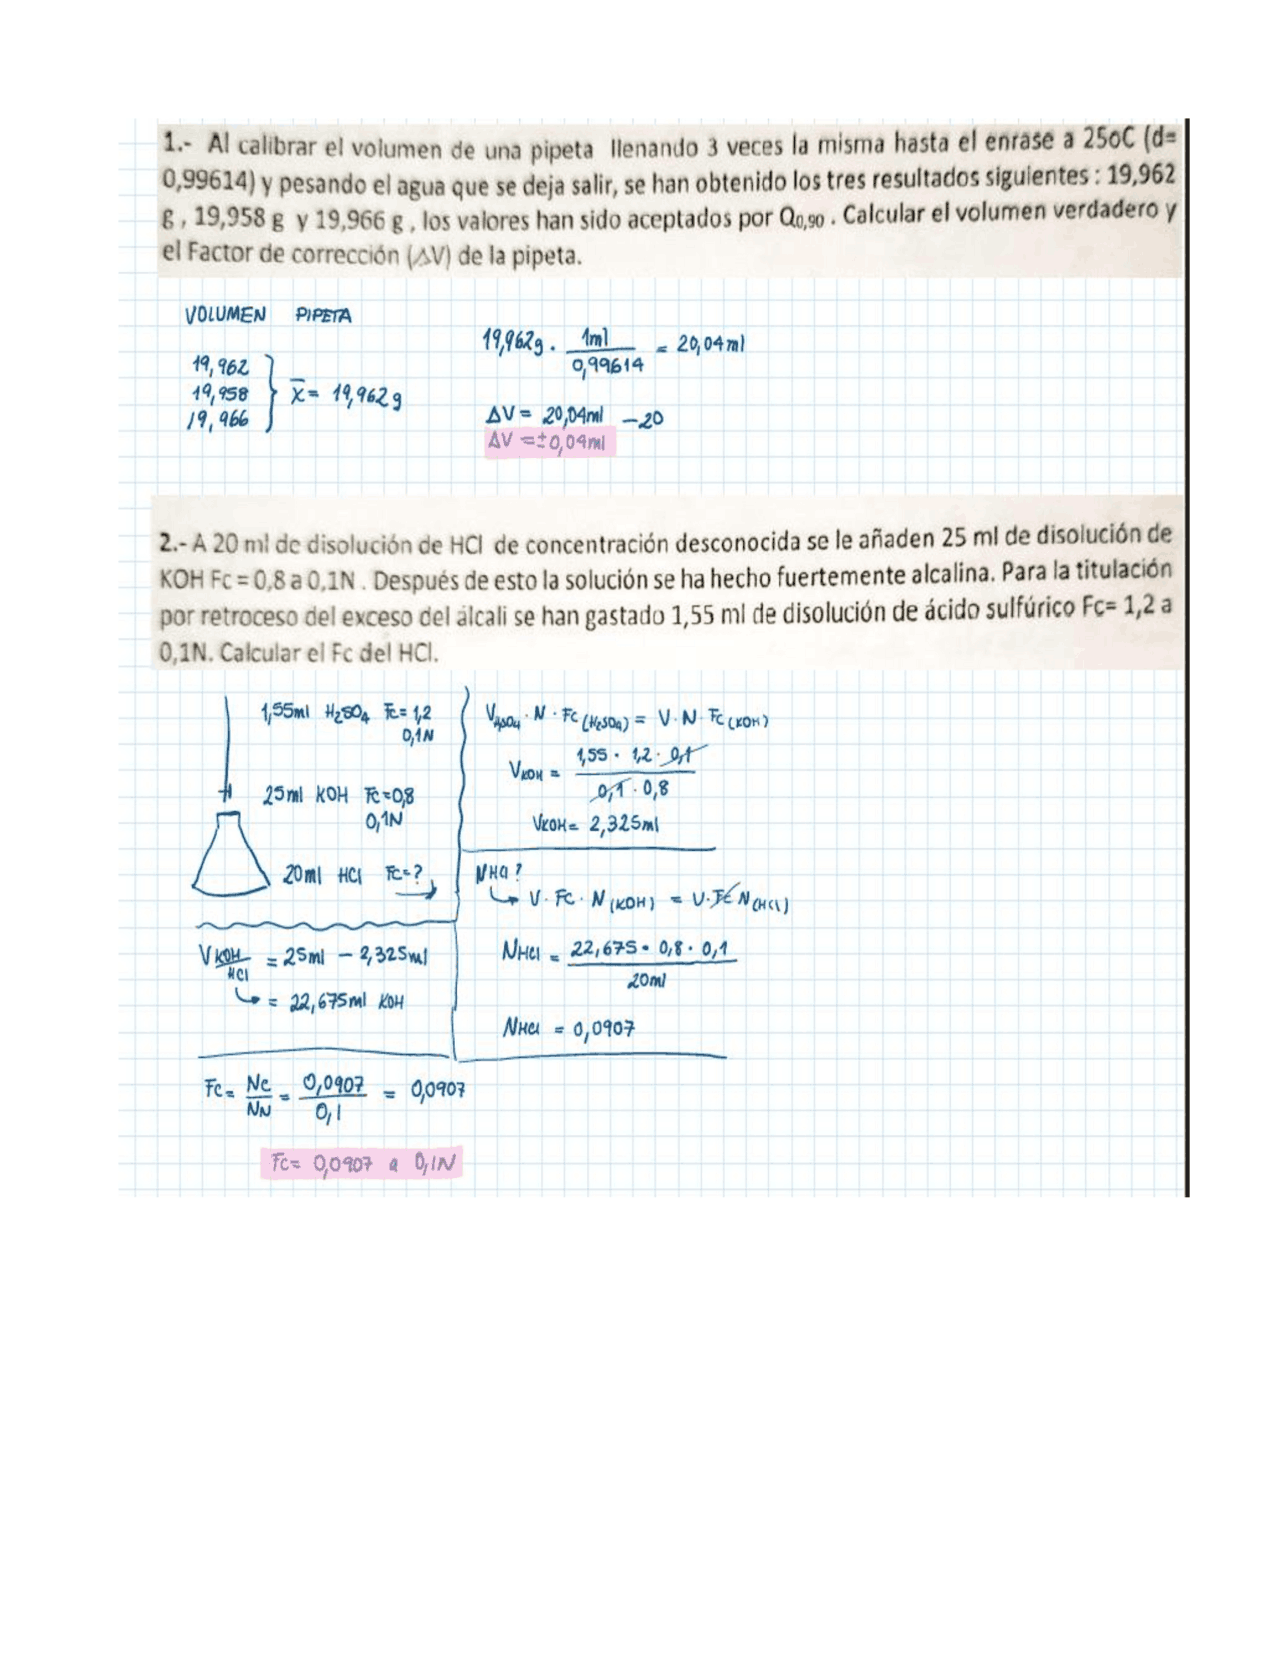 1.- Al calibrar el volumen de una pipeta llenando 3 veces la misma hasta el enrase a 25oC (d=
0,99614) y pesando el agua que se deja salir, se han obtenido los tres resultados siguientes : 19,962
g , 19,958 g y 19,966 g , los valores han sido aceptados por Q0,90 . Calcular el volumen verdadero y
el Factor de corrección (△V) de la pipeta.
VOLUMEN PIPETA
19,962
19,958
19,966
x̄ = 19,962g
19,962g · 1ml / 0,99614 = 20,04ml
ΔV = 20,04ml -20
ΔV =±0,04ml
2.- A 20 ml de disolución de HCl de concentración desconocida se le añaden 25 ml de disolución de
KOH Fc = 0,8 a 0,1N . Después de esto la solución se ha hecho fuertemente alcalina. Para la titulación
por retroceso del exceso del álcali se han gastado 1,55 ml de disolución de ácido sulfúrico Fç= 1,2 a
0,1N. Calcular el Fc del HCl.
1,55ml H2SO4 Fc= 1,2
0,1N
25ml KOH Fc=0,8
0,1N
20ml HCl Fc=?
VH2SO4 · N · Fc (H2SO4) = V · N · Fc (KOH)
VKOH = 1,55 · 1,2 · 0,1 / 0,1 · 0,8
VKOH= 2,325ml
NHCl?
V · Fc · N (KOH) = V · Fc N (HCl)
NHCl = 22,675 · 0,8 · 0,1 / 20ml
NHCl = 0,0907
V KOH / HCl = 25ml - 2,325ml
= 22,675ml KOH
Fc = Nc / NN = 0,0907 / 0,1 = 0,0907
Fc= 0,0907 a 0,1N